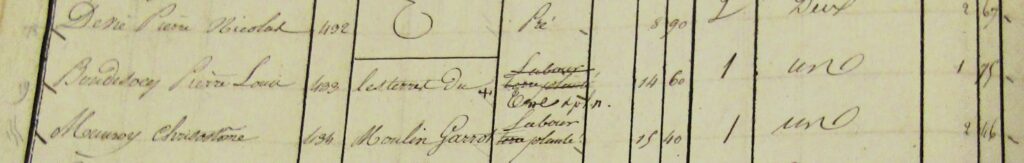 Denié Pierre Nicolas 432 Pré 8 90 2 Deux 2 67
Boudesocq Pierre Louis 433 les terres du Labour 14 60 1 un 1 75
Mauroy Chrisostome 434 Moulin Garrot Labour terre plantée 15 40 1 un 2 46